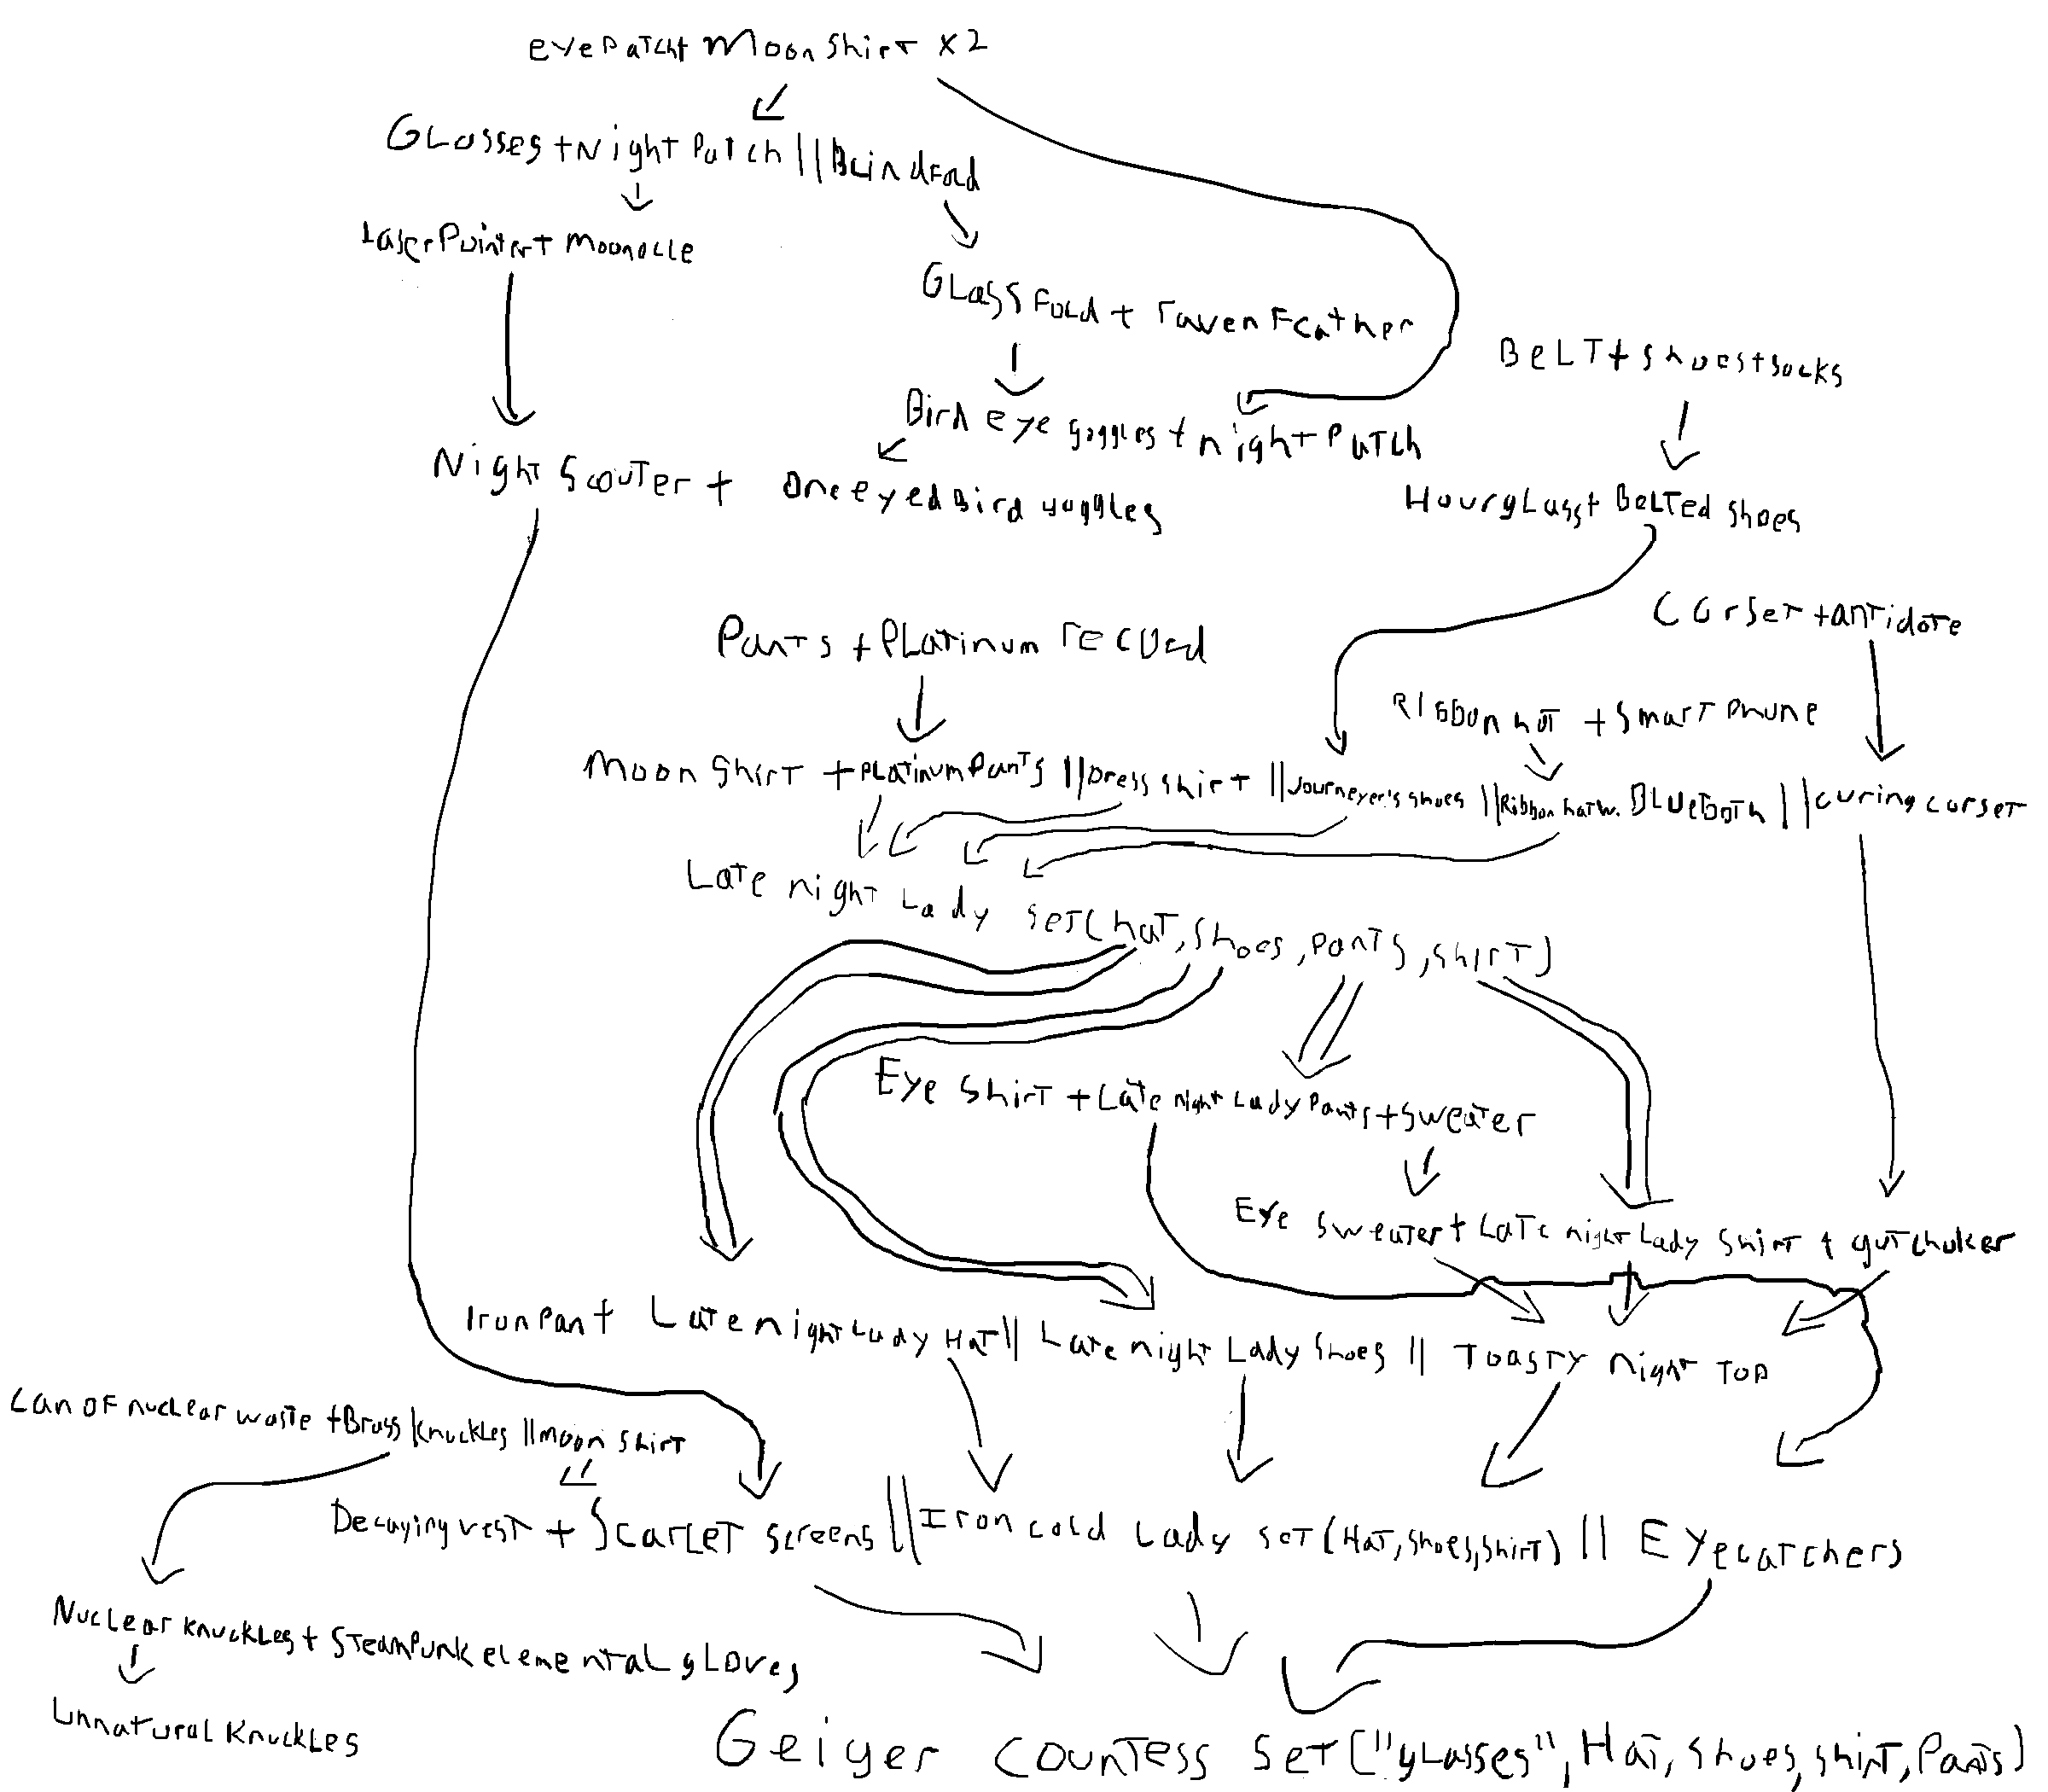 eyepatch+ Moon Shirt x2
Glasses + Night Patch || Blindfold
Laser Pointer + moonocle
Glass fold + raven Feather
Belt + shoes + socks
Bird eye goggles + night patch
Night Scouter + one eyed Bird goggles
Hourglass + Belted shoes
Corset + antidote
Pants + Platinum record
Ribbon hat + smart phone
Moon Shirt + Platinum Pants || Dress Shirt || Journeyer's shoes || Ribbon hat w. Bluetooth || curing corset
Late night Lady set (hat, shoes, pants, shirt)
Eye Shirt + Late night Lady Pants + sweater
Eye sweater + Late night Lady Shirt + gutchoker
Iron Pan + Late night Lady Hat || Late night Lady Shoes || Toasty night Top
Can of nuclear waste + Brass knuckles || moon shirt
Decaying vest + Scarlet screens || Iron cold Lady set (Hat, shoes, shirt) || Eyecatchers
Nuclear knuckles + Steampunk elemental gloves
Unnatural Knuckles
Geiger Countess Set ("glasses", Hat, shoes, shirt, Pants)